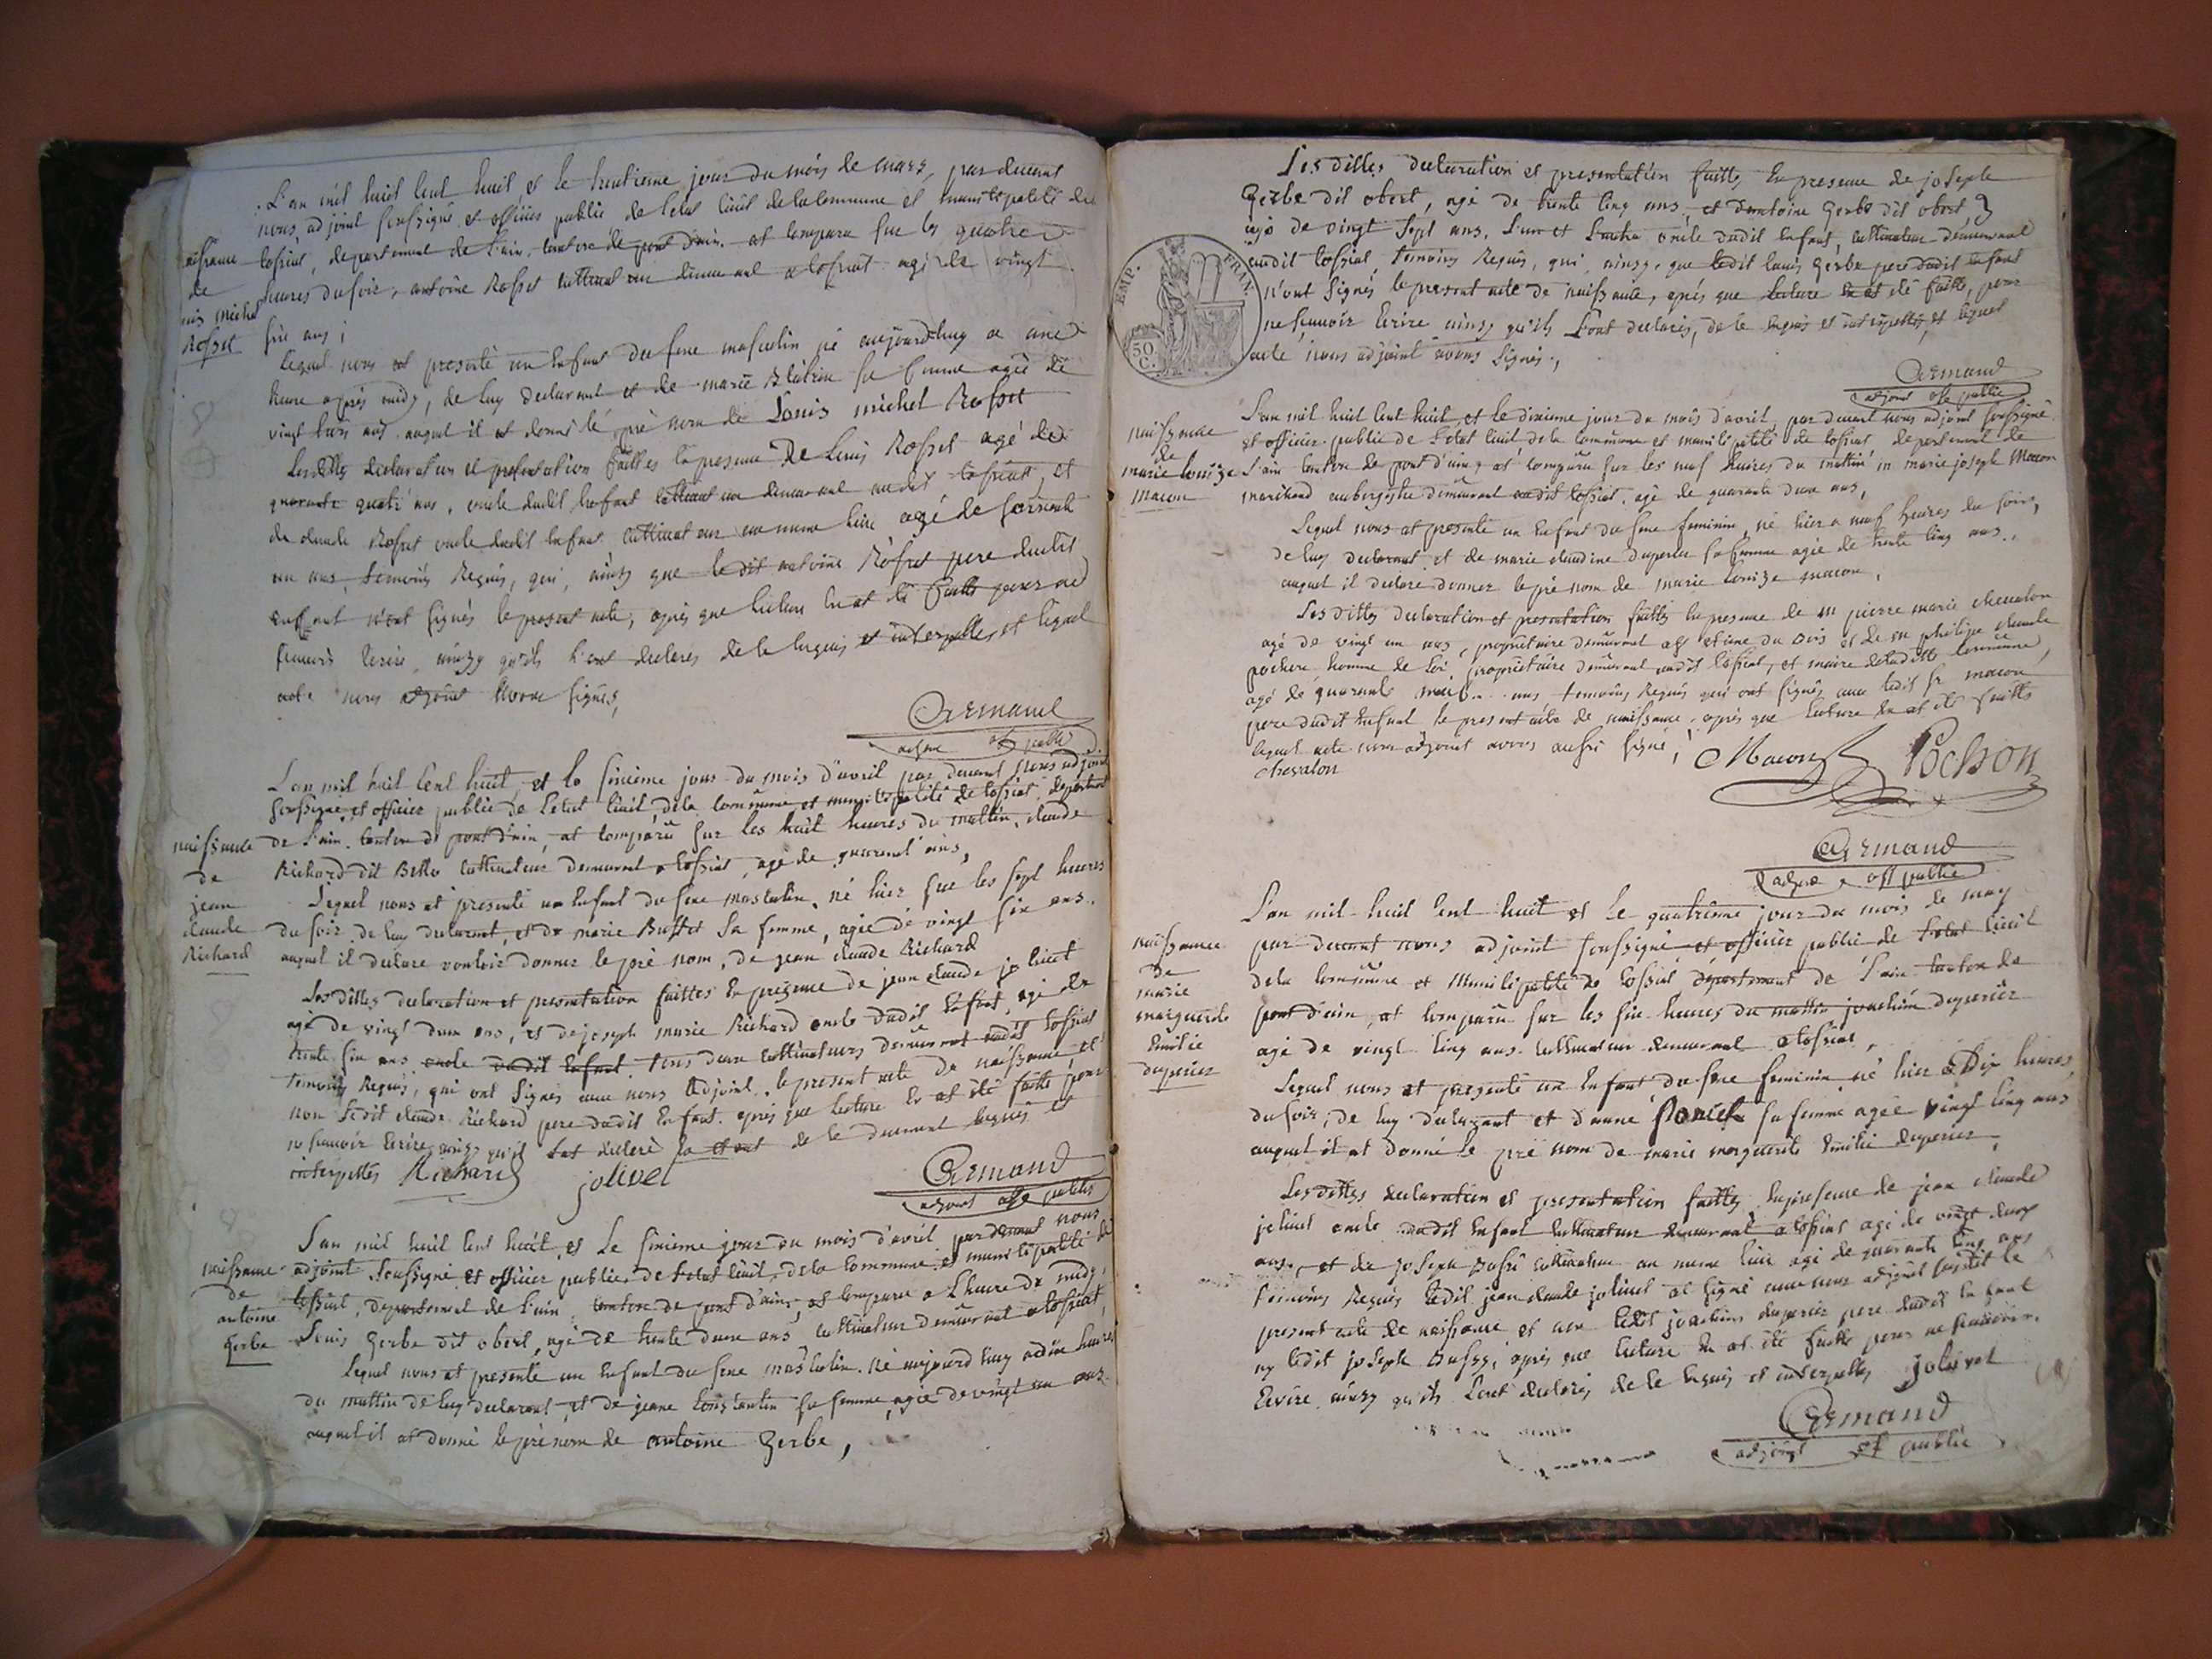 L'an mil huit cent huit et le trentieme jour du mois de mars, par devant
nous adjoint soussigné et officier public de letat civil de la commune et municipalité de
tossiat, departement de l'ain, canton de pont d'ain. at comparu sur les quatre
heures du soir, antoine Rosset cultivateur demeurant a tossiat agé de vingt
six ans;
naissance
de
louis michel
Rosset
Lequel nous at presenté un enfant du sexe masculin né aujourd'huy a une
heure après midy, de luy declarant et de marie sa femme agée de
vingt trois ans auquel il at donné le pré nom de Louis michel Rosset
Lesdittes declaration et presentation faittes en presence De Louis Rosset agé de
quarante quatr'ans, oncle dudit enfant cultivateur demeurant audit tossiat, et
de claude Rosset oncle dudit enfant cultivateur au meme lieu agé de soixante
un ans, temoins Requis, qui, ainsy que le dit antoine Rosset pere dudit
enfant n'ont signés le present acte, après que lecture en at été faitte pour ne
scavoir ecrire, ainsy qu'ils l'ont declarés de le enquis et interpellés et lequel
acte nous adjoint avons signés,
Armand
adjoint off public
L'an mil huit cent huit, et le sixieme jour du mois d'avril par devant nous adjoint
soussigné, et officier public de l'etat civil, de la commune et municipalité de tossiat, departement
de l'ain. canton de pont d'ain, at comparu sur les huit heures du mattin, claude
Richard dit Bello cultivateur demeurant a tossiat, agé de quarent'ans,
naissance
de
jean
claude
Richard
Lequel nous at presenté un enfant du sexe masculin, né hier sur les sept heures
du soir, de luy declarant, et de marie Buffet sa femme, agée de vingt six ans.
auquel il declare vouloir donner le pré nom, de jean claude Richard
Lesdittes declaration et presentation faittes en presence de jean claude jolivet
agé de vingt deux ans, et de joseph marie Richard oncle dudit enfant, agé de
trente six ans oncle dudit enfant. tous deux cultivateurs demeurant audit tossiat
temoins Requis, qui ont signés avec nous adjoint. le present acte de naissance et
non ledit claude Richard pere dudit enfant. après que lecture en at été faitte pour
ne scavoir ecrire ainsy qu'il l'at declaré de le enquis et
interpellés Richard jolivet
Armand
adjoint off public
L'an mil huit cent huit, et le sixieme jour du mois d'avril par devant nous
adjoint soussigné et officier public, de l'etat civil, de la commune et municipalité de
tossiat, departement de l'ain, canton de pont d'ain, at comparu a l'heure de midy,
Louis Gerbe dit obert, agé de trente deux ans, cultivateur demeurant a tossiat,
naissance
de
antoine
Gerbe
Lequel nous at presenté un enfant du sexe masculin. né aujourd'huy a dix heures
du mattin de luy declarant, et de jeane constantin sa femme agée de vingt un ans.
auquel il at donné le prénom de antoine Gerbe,
Lesdittes declaration et presentation faittes en presence de joseph
Gerbe dit obert, agé de trente cinq ans, et d'antoine Gerbe dit obert,
agé de vingt sept ans, l'un et l'autre oncle dudit enfant, cultivateur demeurant
audit tossiat, temoins Requis, qui, ainsy, que ledit louis Gerbe pere dudit enfant
n'ont signés le present acte de naissance, après que lecture en at été faitte, pour
ne scavoir ecrire ainsy qu'ils l'ont declarés, de le enquis et interpellés, et lequel
acte nous adjoint avons signés.,
EMP. FRAN.
50
C.
Armand
adjoint off public
L'an mil huit cent huit, et le dixieme jour du mois d'avril, par devant nous adjoint soussigné
et officier public de l'etat civil de la commune et municipalité de tossiat, departement de
l'ain canton de pont d'ain, at comparu sur les neuf heures du mattin m marie joseph Macon
marchand aubergiste demeurant audit tossiat, agé de quarante deux ans,
naissance
de
marie louize
macon
Lequel nous at presenté un enfant du sexe feminin, né hier a neuf heures du soir,
de luy declarant, et de marie claudine duperier sa femme agée de trente cinq ans..
auquel il declare donner le pré nom de marie louize macon,
Lesdittes declaration et presentation faittes en presence de m pierre marie chevalon
agé de vingt un ans, propriétaire demeurant a st etiene du bois et de m philipe claude
pochon, homme de loi, propriétaire demeurant audit tossiat, et maire de laditte commune,
agé de quarante ans temoins Requis qui ont signés avec ledit sr macon
pere dudit enfant le present acte de naissance. après que lecture en at été faitte
lequel acte nous adjoint avons aussi signé,
chevalon
Macon Pochon
Armand
adjoint off public
L'an mil huit cent huit et le quatrieme jour du mois de may
par devant nous adjoint soussigné et officier public de l'etat civil
de la commune et municipalité de tossiat departement de l'ain canton de
pont d'ain, at comparu sur les six heures du mattin joachim duperier
agé de vingt cinq ans cultivateur demeurant a tossiat,
naissance
de
marie
marguerite
Emilie
duperier
Lequel nous at presenté un enfant du sexe feminin né hier a Dix heures
du soir, de luy declarant et d'anne sa femme agée vingt cinq ans
auquel il at donné le pré nom de marie marguerite Emilie duperier,
Lesdittes declaration et presentation faittes en presence de jean claude
jolivet oncle dudit enfant cultivateur demeurant a tossiat agé de vingt deux
ans, et de joseph cultivateur au meme lieu agé de quarante cinq ans
temoins Requis ledit jean claude jolivet at signé avec nous adjoint susdit le
present acte de naissance et non ledit joachim duperier pere dudit enfant
ny ledit joseph après que lecture en at été faitte pour ne scavoir
Ecrire ainsy qu'ils l'ont declarés de le enquis et interpellés jolivet
Armand
adjoint off public